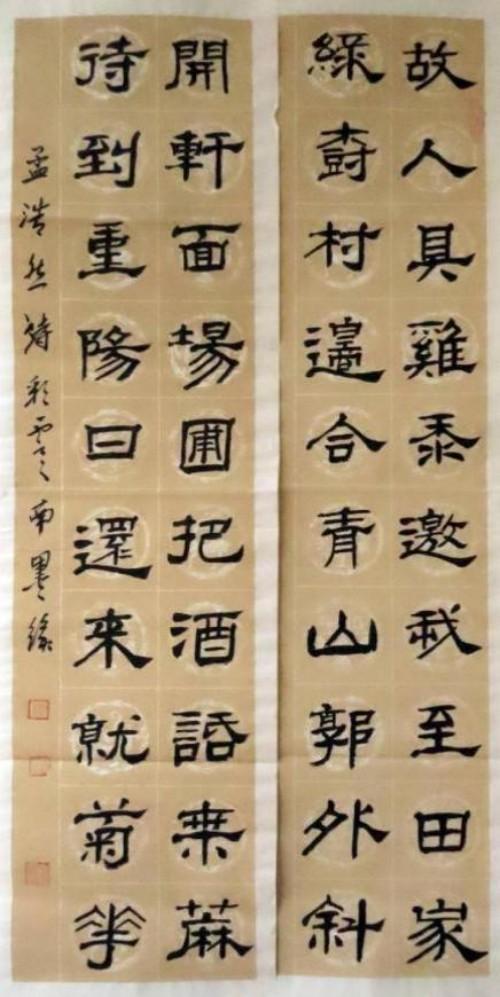 故人具雞黍邀我至田家
綠樹村邊合青山郭外斜
開軒面場圃把酒話桑麻
待到重陽日還來就菊華
孟浩然詩彩雲之南墨緣